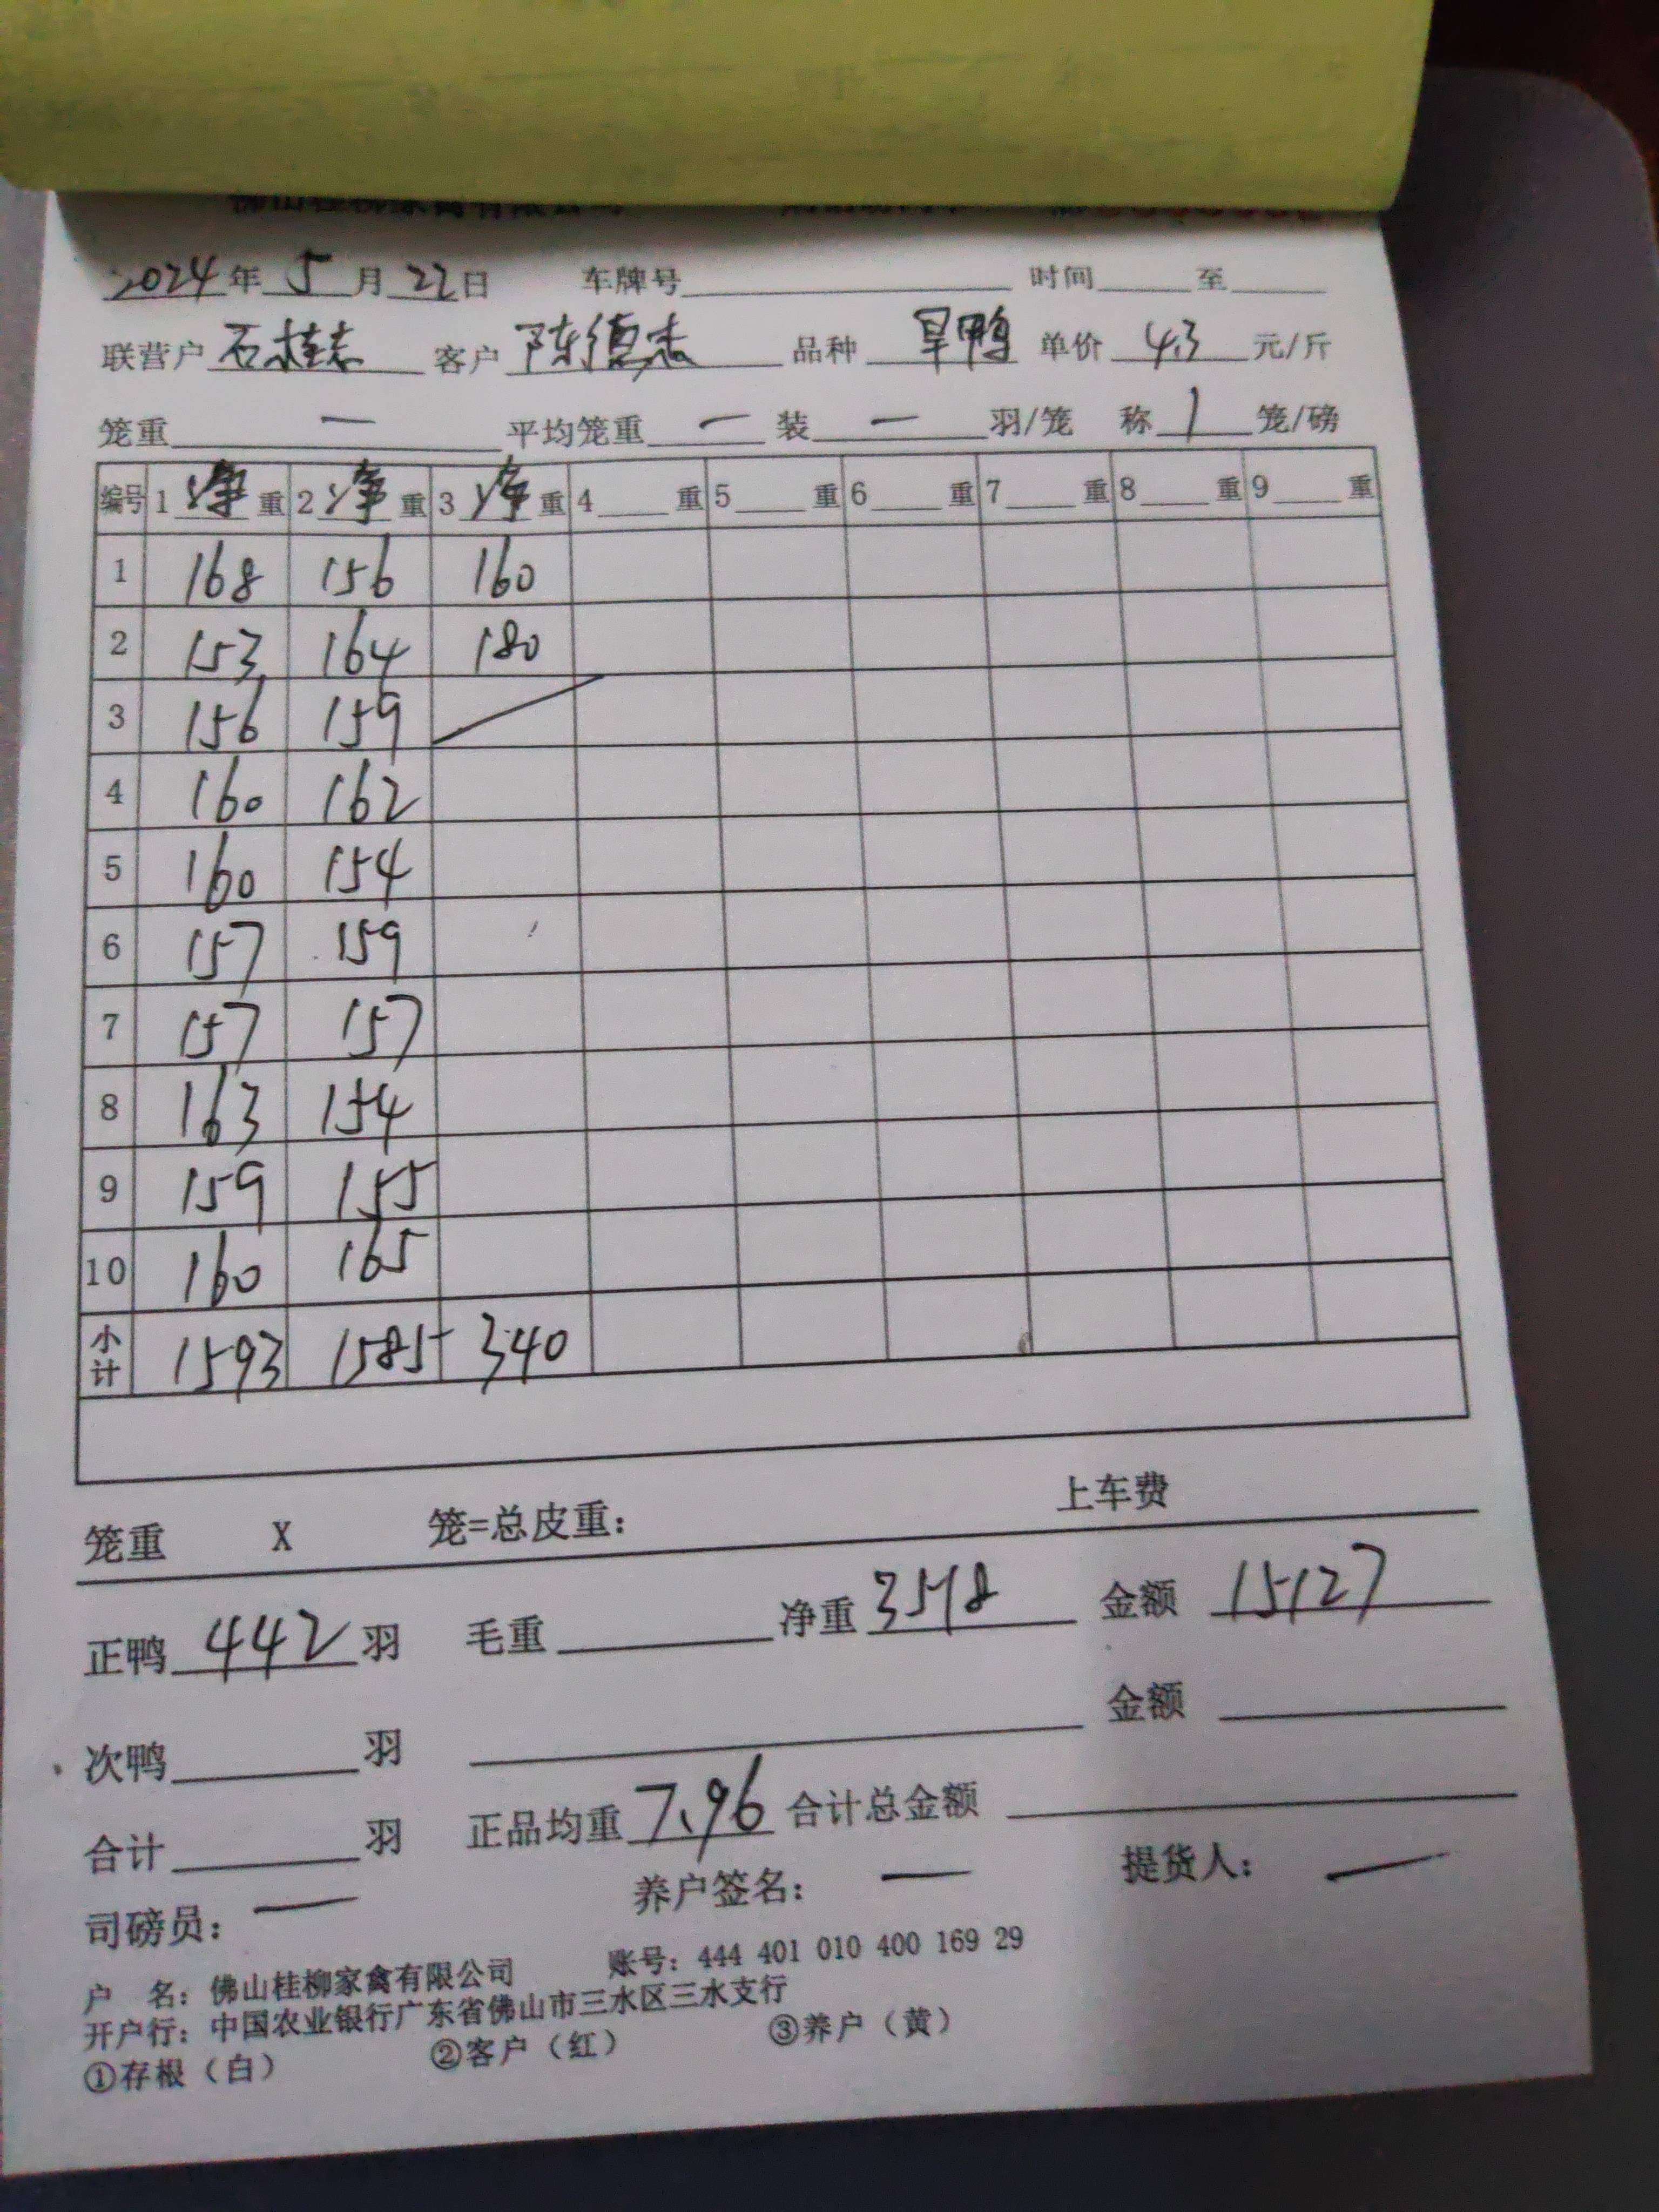 佛山桂柳家禽有限公司
2024年 5 月 22 日 车牌号 时间 至
联营户 石桂志 客户 陈德志 品种 旱鸭 单价 4.3 元/斤
笼重 一 平均笼重 一 装 一 羽/笼 称 1 笼/磅
编号 1 净 重 2 净 重 3 净 重 4 重 5 重 6 重 7 重 8 重 9 重
1 168 156 160
2 153 164 180
3 156 159
4 160 162
5 160 154
6 157 159
7 157 157
8 163 154
9 159 155
10 160 165
小计 1593 1585 340
笼重 X 笼=总皮重: 上车费
正鸭 442 羽 毛重 净重 3518 金额 15127
次鸭 羽 金额
合计 羽 正品均重 7.96 合计总金额
司磅员: 一 养户签名: 一 提货人: 一
户 名: 佛山桂柳家禽有限公司 账号: 444 401 010 400 169 29
开户行: 中国农业银行广东省佛山市三水区三水支行
①存根（白） ②客户（红） ③养户（黄）